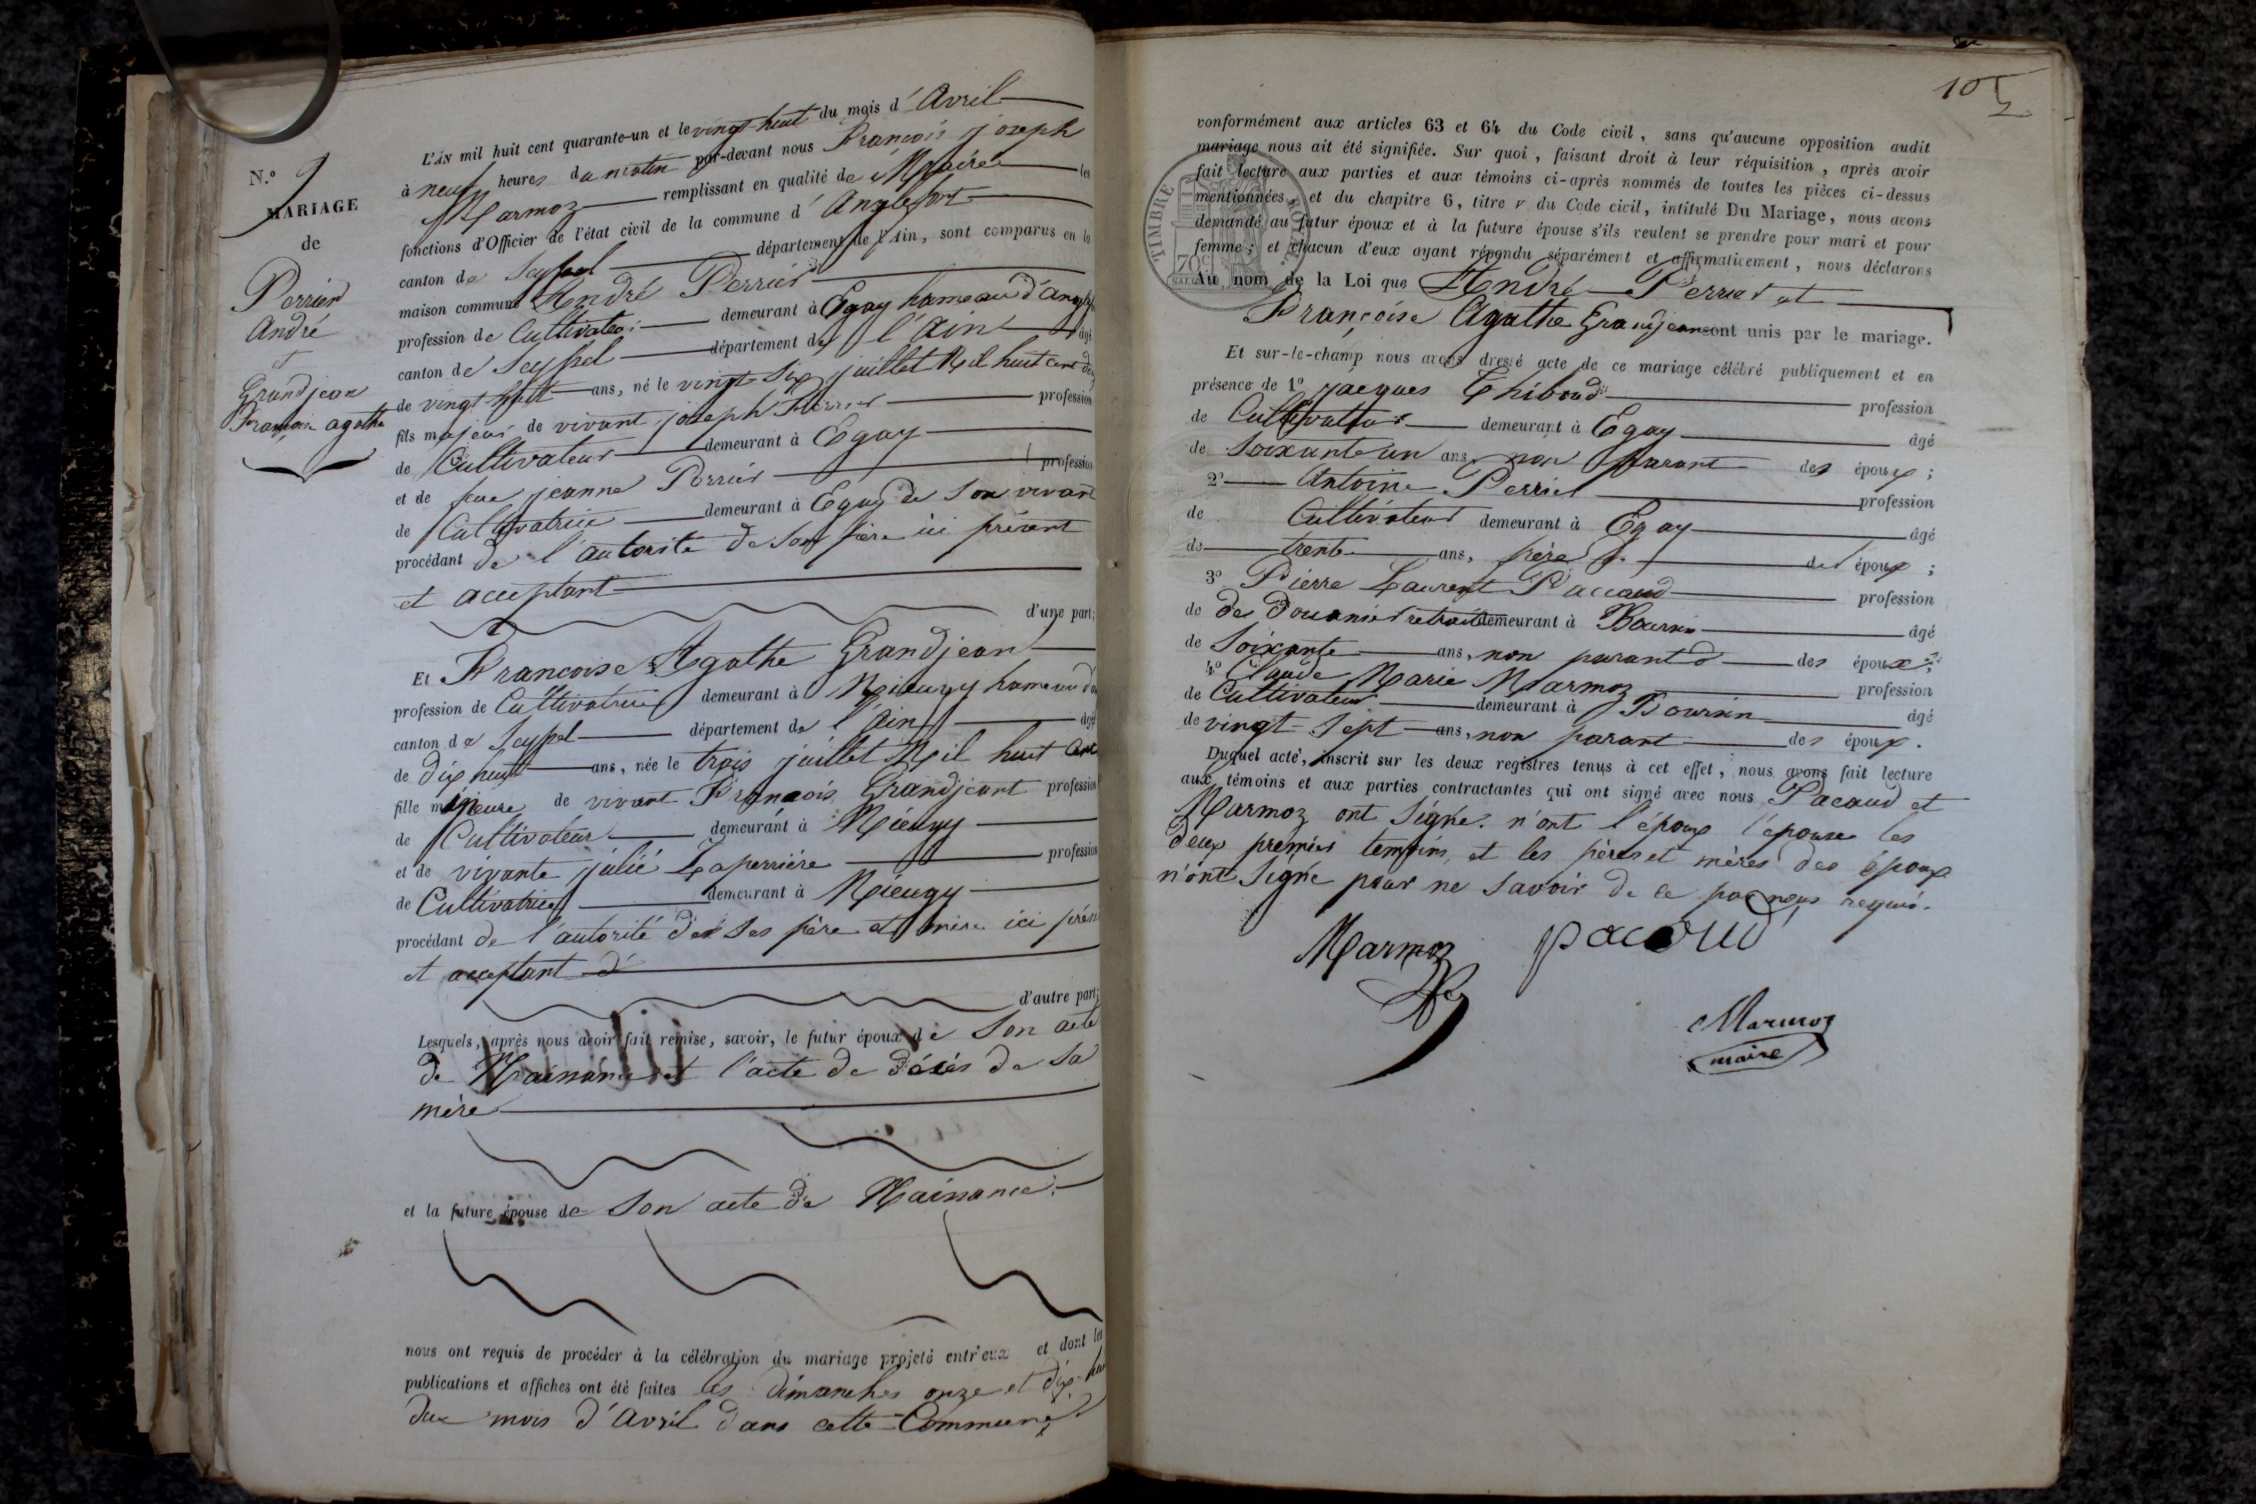 N.º 9
MARIAGE
de
Perrier
André
et
Grandjean
Françoise agathe
L'AN mil huit cent quarante-un et le vingt huit du mois d'Avril
à neuf heures du matin par-devant nous François joseph
Marmoz remplissant en qualité de Maire les
fonctions d'Officier de l'état civil de la commune d'Anglefort
canton de Seyssel département de l'Ain, sont comparus en la
maison commune André Perrier
profession de Cultivateur demeurant à Egay hameau d'
canton de Seyssel département de l'Ain âgé
de vingt huit ans, né le vingt six juillet Mil huit cent
fils majeur de vivant joseph Perrier profession
de Cultivateur demeurant à Egay
et de feue jeanne Perrier profession
de Cultivatrice demeurant à Egay de Son vivant
procédant de l'autorité de Son père ici présent
et acceptant
d'une part;
Et Françoise Agathe Grandjean
profession de Cultivatrice demeurant à hameau
canton de Seyssel département de l'Ain âgé
de dix huit ans, née le trois juillet Mil huit Cent
fille mineure de vivant François Grandjeant profession
de Cultivateur demeurant à
et de vivante julie Laperrière profession
de Cultivatrice demeurant à
procédant de l'autorité des Ses père et mère ici
et acceptant
d'autre part;
Lesquels, après nous avoir fait remise, savoir, le futur époux de Son acte
de Naissance et l'acte de décès de Sa
mère
et la future épouse de Son acte de Naissance
nous ont requis de procéder à la célébration du mariage projeté entr'eux et dont les
publications et affiches ont été faites les dimanches onze et dix-
du mois d'Avril dans cette Commune
105
conformément aux articles 63 et 64 du Code civil, sans qu'aucune opposition audit
mariage nous ait été signifiée. Sur quoi, faisant droit à leur réquisition, après avoir
fait lecture aux parties et aux témoins ci-après nommés de toutes les pièces ci-dessus
mentionnées et du chapitre 6, titre v du Code civil, intitulé Du Mariage, nous avons
demandé au futur époux et à la future épouse s'ils veulent se prendre pour mari et pour
femme; et chacun d'eux ayant répondu séparément et affirmativement, nous déclarons
Au nom de la Loi que André Perrier et
Françoise Agathe Grandjean sont unis par le mariage.
TIMBRE ROYAL
70c
Et sur-le-champ nous avons dressé acte de ce mariage célébré publiquement et en
présence de 1º jacques Thiboud profession
de Cultivateur demeurant à Egay âgé
de Soixante un ans, non parant des époux;
2º Antoine Perrier profession
de Cultivateur demeurant à Egay âgé
de trente ans, frère des époux;
3º Pierre Laurent Paccaud profession
de de Douanier retraité demeurant à Boursin âgé
de Soixante ans, non parant des époux;
4º Claude Marie Marmoz profession
de Cultivateur demeurant à Boursin âgé
de vingt-Sept ans, non parant des époux.
Duquel acte, inscrit sur les deux registres tenus à cet effet, nous avons fait lecture
aux témoins et aux parties contractantes qui ont signé avec nous Pacaud et
Marmoz ont Signé. n'ont l'époux l'épouse les
deux premier temoins, et les pères et mères des époux
n'ont Signé pour ne Savoir de ce par nous requis.
Marmoz pacoud
Marmoz
maire